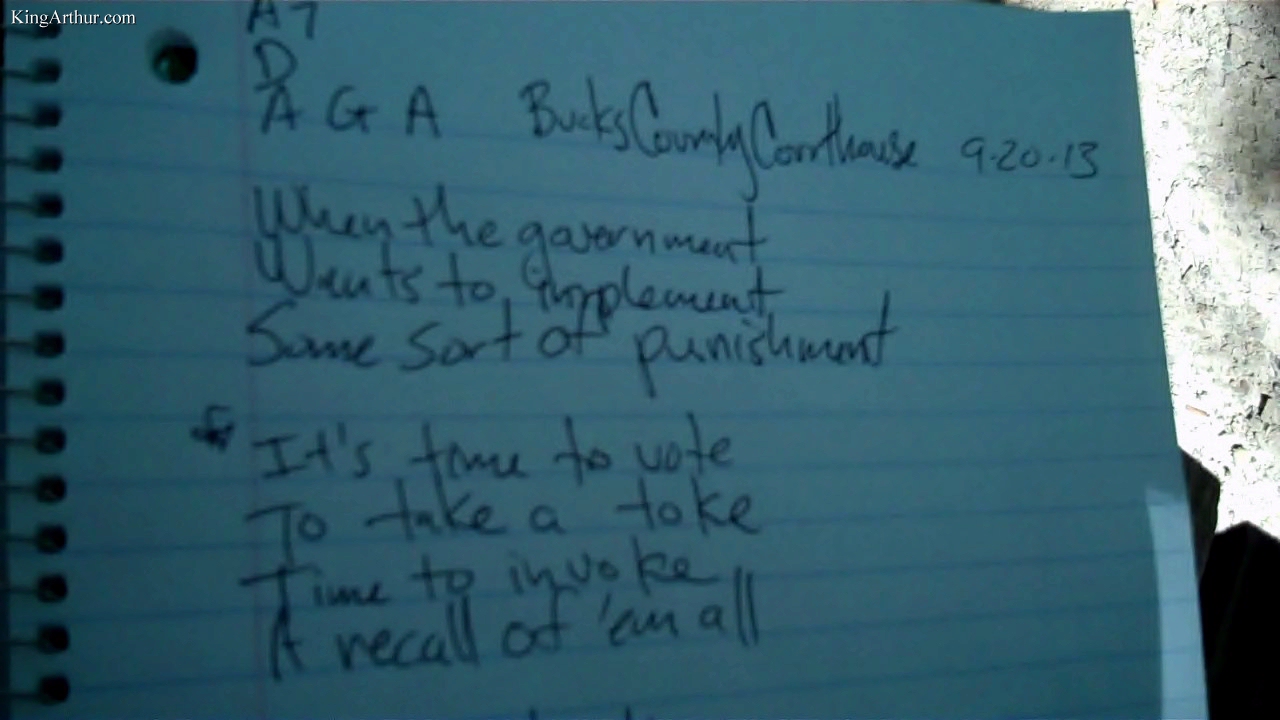 KingArthur.com
A7
D
A G A Bucks County Courthouse 9-20-13
When the government
Wants to implement
Some sort of punishment
It's time to vote
To take a toke
Time to invoke
A recall of 'em all